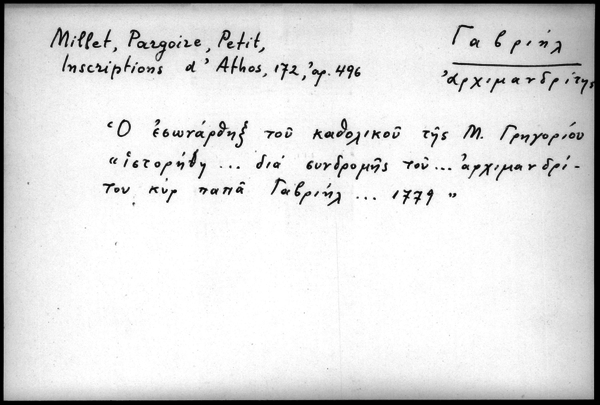 Millet, Pargoire, Petit,
Inscriptions d'Athos, 172, ἀρ. 496
Γαβριήλ
ἀρχιμανδρίτης
Ὁ ἐσωνάρθηξ τοῦ καθολικοῦ τῆς Μ. Γρηγορίου
"ἱστορήθη ... διά συνδρομῆς τοῦ ... ἀρχιμανδρί-
του κύρ παπᾶ Γαβριήλ ... 1779"